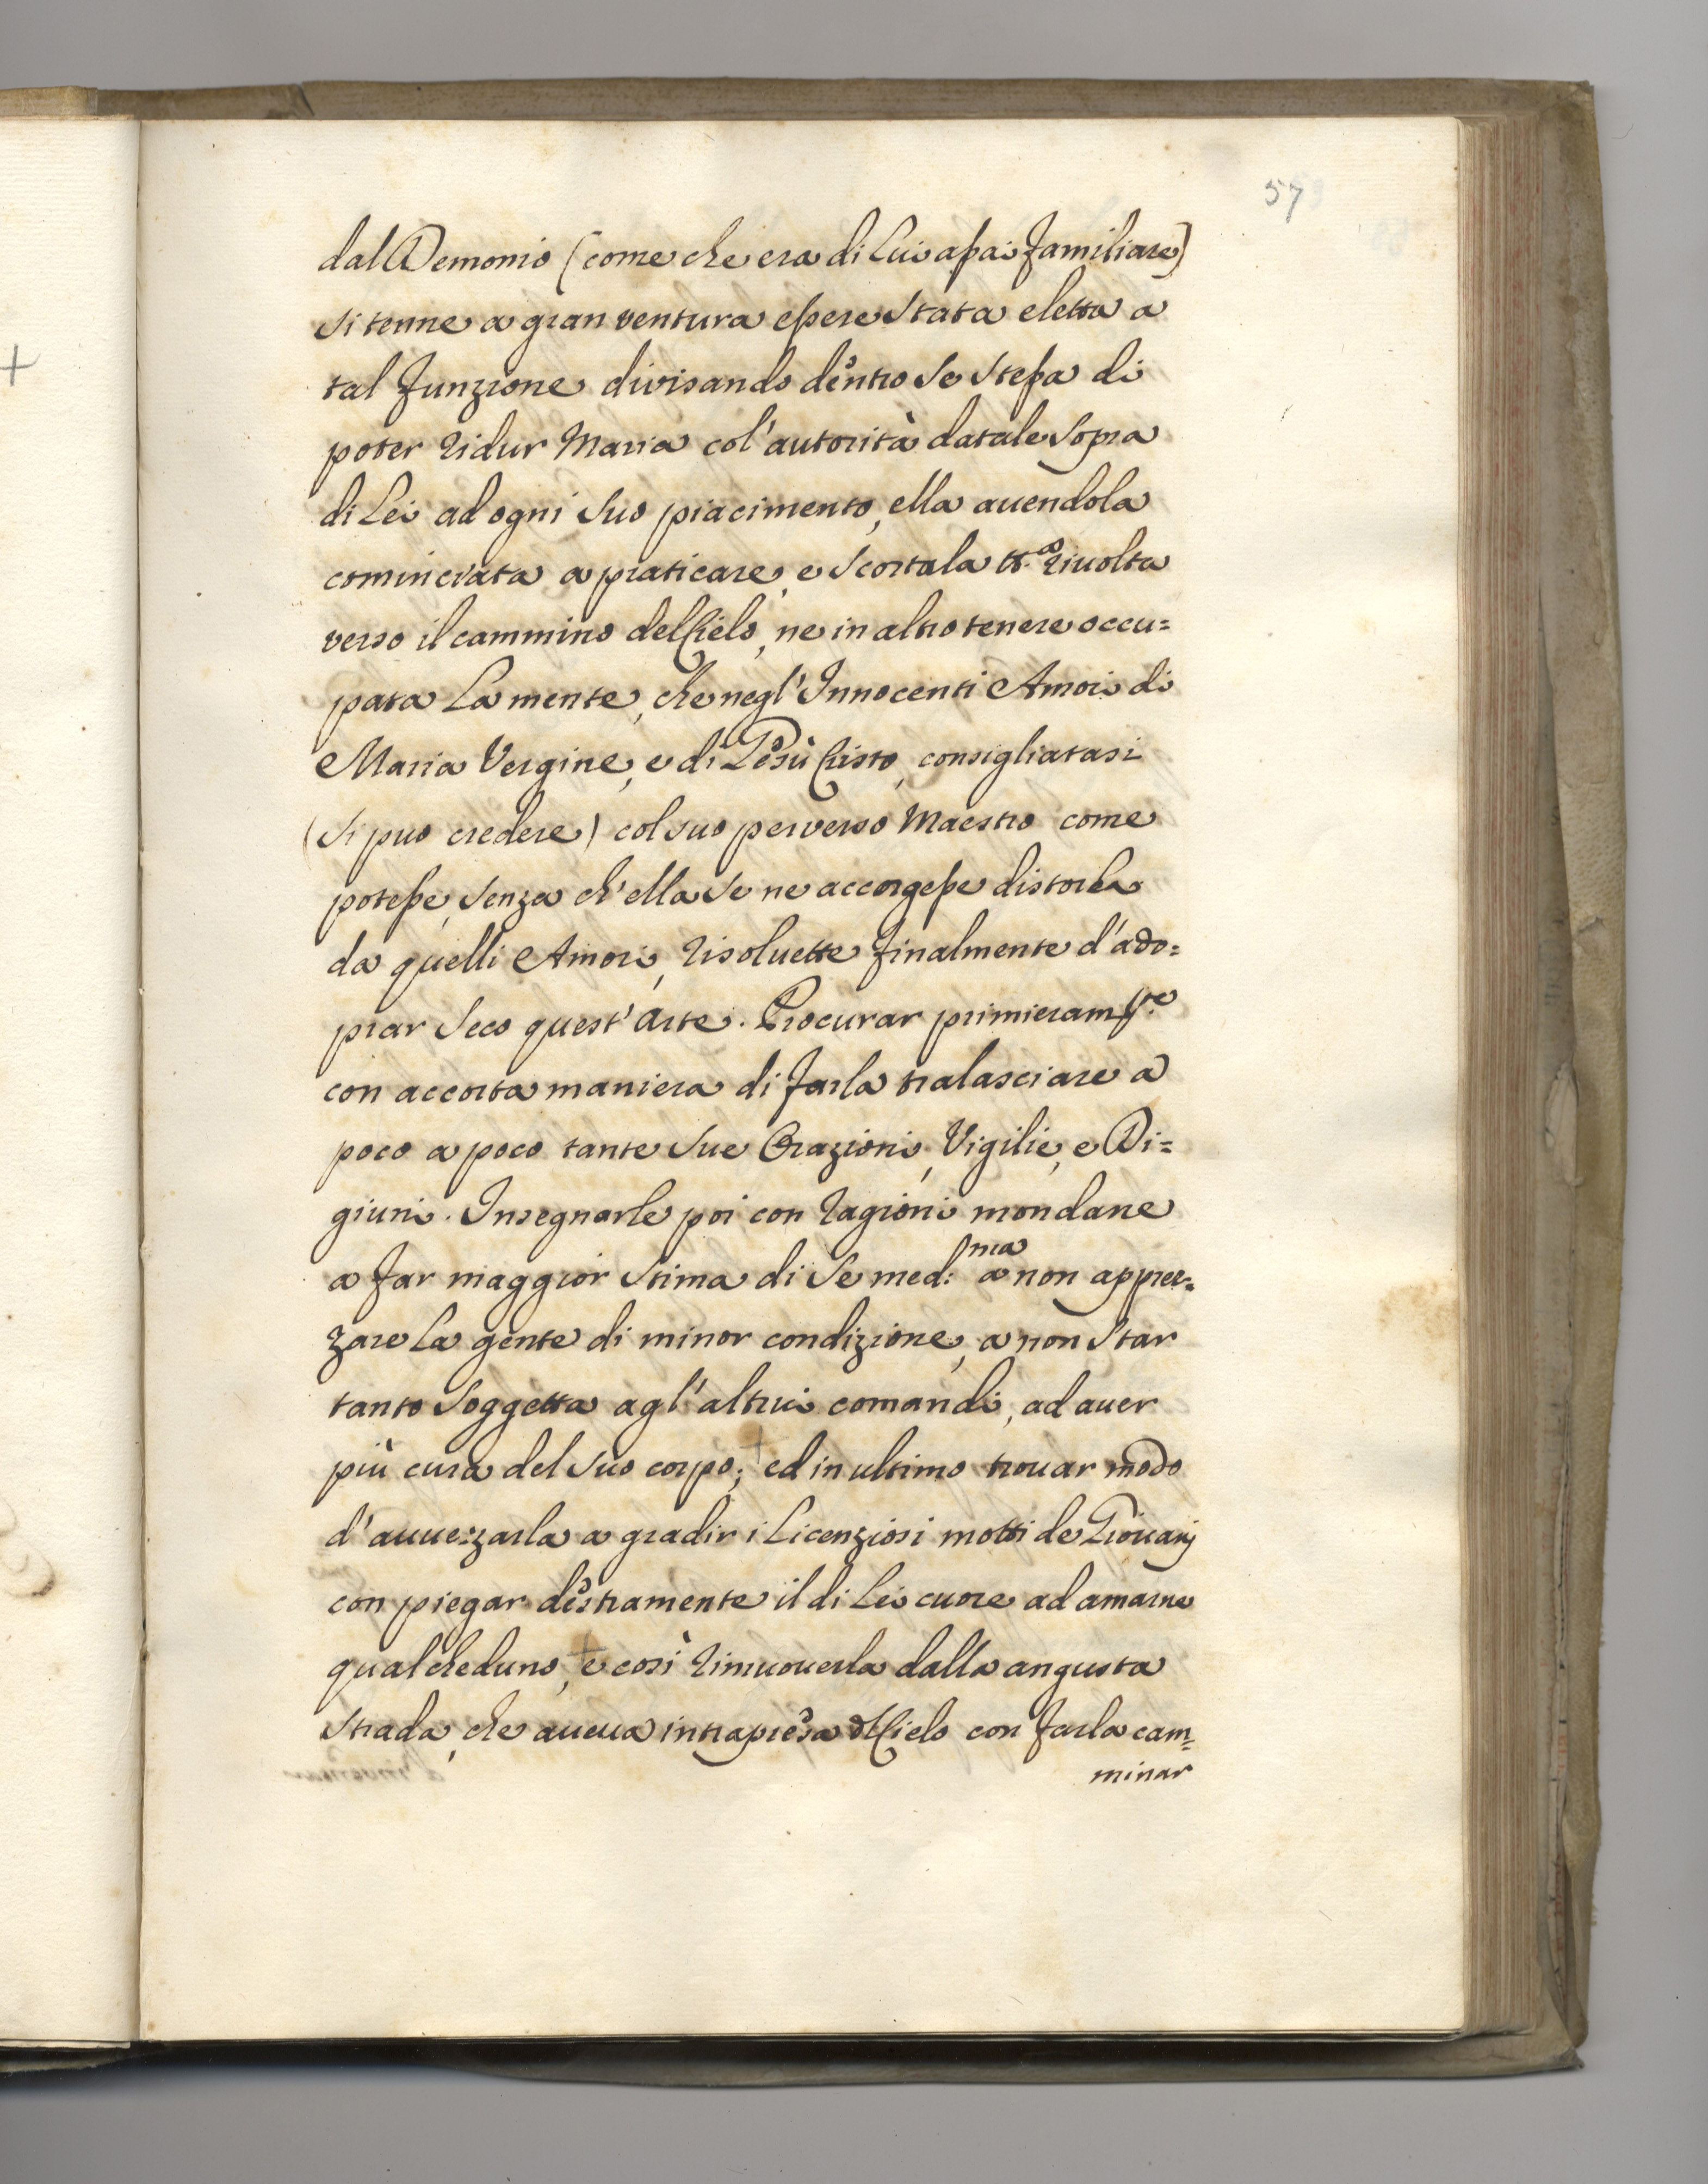 57
dal Demonio (come che era di Lui assai familiare)
si tenne a gran ventura essere stata eletta a
tal funzione divisando dentro se stessa di
poter ridur Maria col'autorità datale sopra
di Lei ad ogni suo piacimento, ella auendola
cominciata a praticare, e scortala tt.a riuolta
verso il cammino del Cielo, ne in altro tenere occu=
pata La mente, che negl'Innocenti Amori di
Maria Vergine, e di Gesù Cristo, consigliatasi
(si puo credere) col suo perverso Maestro come
potesse, senza ch'ella se ne accorgesse distorla
da quelli Amori, risoluette finalmente d'ado=
prar seco quest'Arte. Procurar primieram.te
con accorta maniera di farla tralasciare a
poco a poco tante sue Orazioni, Vigilie, e Di=
giuni. Insegnarle poi con ragioni mondane
a far maggior stima di se med:ma a non apprez=
zare La gente di minor condizione, a non star
tanto soggetta agl'altrui comandi, ad auer
più cura del suo corpo; + ed in ultimo trouar modo
d'auuezzarla a gradir i Licenziosi motti de Giouanj
con piegar destramente il di Lei cuore ad amarne
qualcheduno, + e così rimuouerla dalla angusta
strada, che aueua intrapresa del Cielo con farla cam=
minar
+